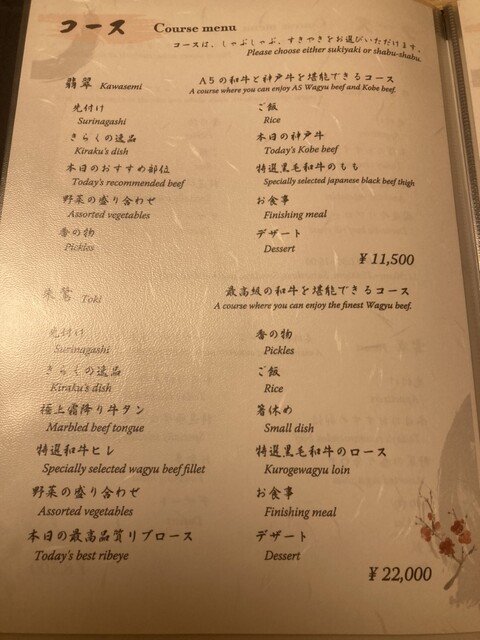 コース Course menu
コースは、しゃぶしゃぶ、すきやきをお選びいただけます。
Please choose either sukiyaki or shabu-shabu.
翡翠 Kawasemi
A5の和牛と神戸牛を堪能できるコース
A course where you can enjoy A5 Wagyu beef and Kobe beef.
先付け
Surinagashi
きらくの逸品
Kiraku's dish
本日のおすすめ部位
Today's recommended beef
野菜の盛り合わせ
Assorted vegetables
香の物
Pickles
ご飯
Rice
本日の神戸牛
Today's Kobe beef
特選黒毛和牛のもも
Specially selected japanese black beef thigh
お食事
Finishing meal
デザート
Dessert
¥ 11,500
朱鷺 Toki
最高級の和牛を堪能できるコース
A course where you can enjoy the finest Wagyu beef.
先付け
Surinagashi
きらくの逸品
Kiraku's dish
極上霜降り牛タン
Marbled beef tongue
特選和牛ヒレ
Specially selected wagyu beef fillet
野菜の盛り合わせ
Assorted vegetables
本日の最高品質リブロース
Today's best ribeye
香の物
Pickles
ご飯
Rice
箸休め
Small dish
特選黒毛和牛のロース
Kurogewagyu loin
お食事
Finishing meal
デザート
Dessert
¥ 22,000